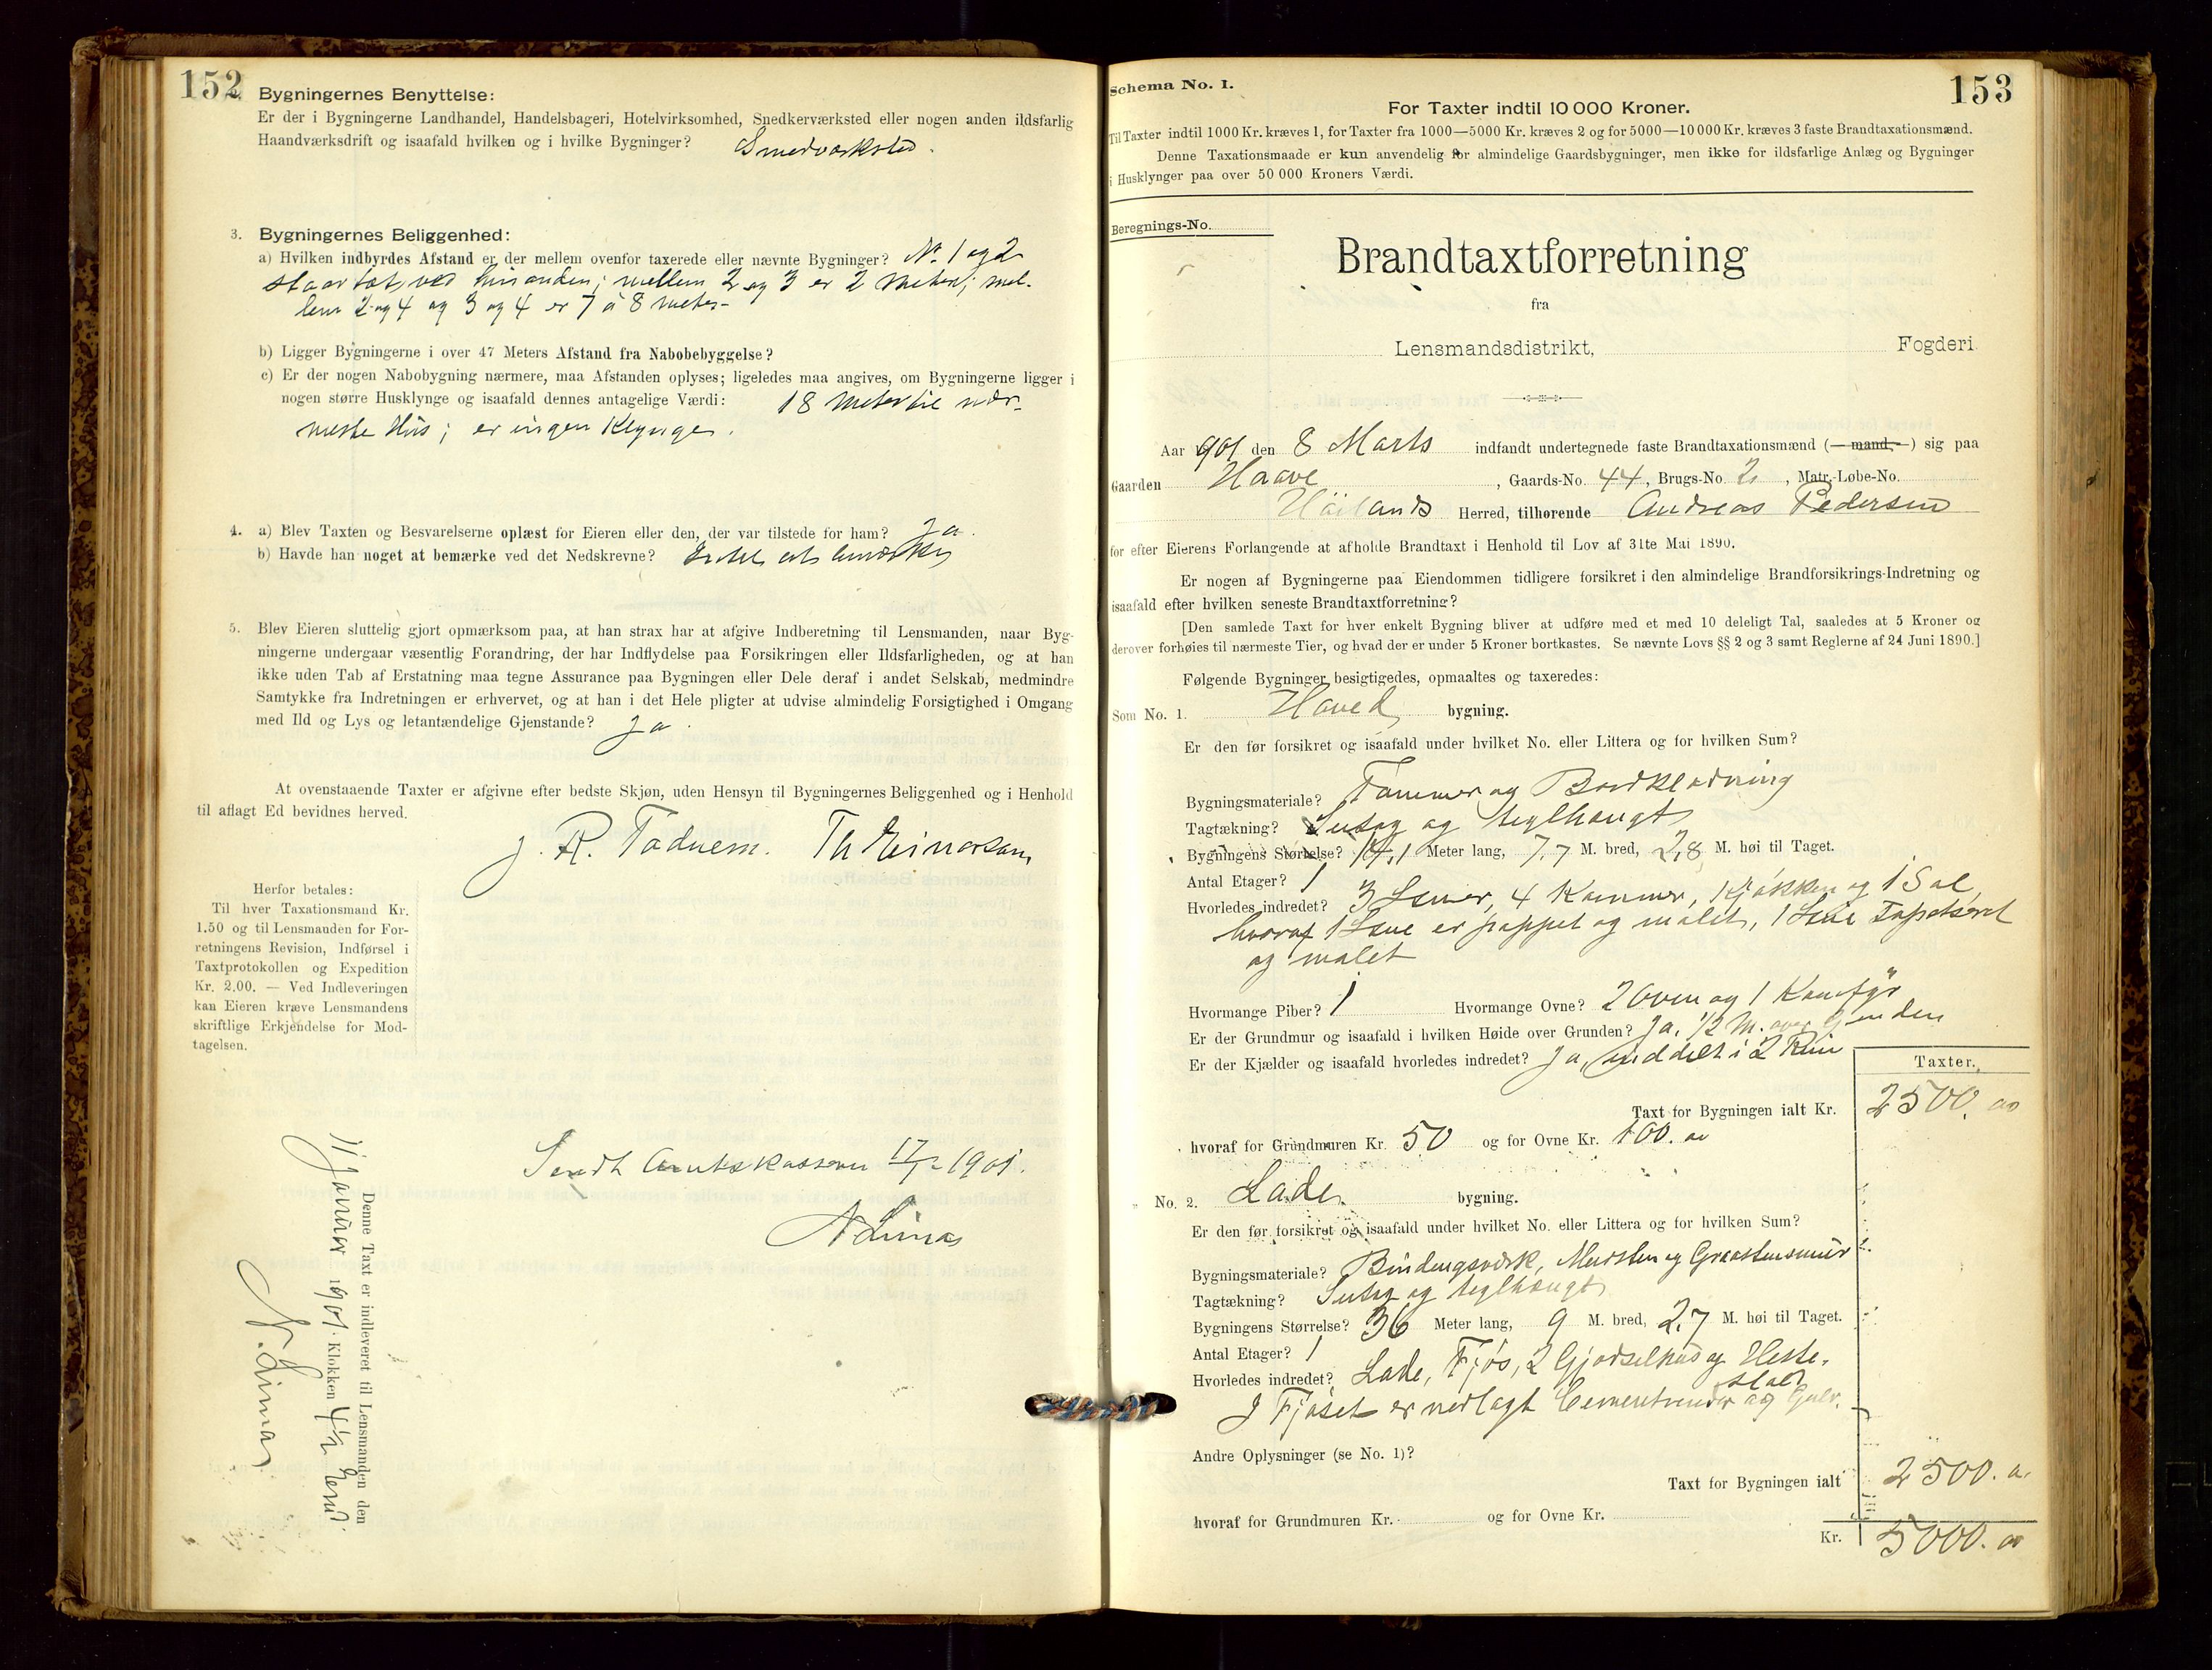 152
Bygningernes Benyttelse:
Er der i Bygningerne Landhandel, Handelsbageri, Hotelvirksomhed, Snedkerværksted eller nogen anden ildsfarlig
Haandværksdrift og isaafald hvilken og i hvilke Bygninger? Smedværksted.
3. Bygningernes Beliggenhed:
a) Hvilken indbyrdes Afstand er der mellem ovenfor taxerede eller nævnte Bygninger? No. 1 og 2
staar tæt ved hinanden; mellem 2 og 3 er 2 meter; mel-
lem 2 og 4 og 3 og 4 er 7 á 8 meter
b) Ligger Bygningerne i over 47 Meters Afstand fra Nabobebyggelse?
c) Er der nogen Nabobygning nærmere, maa Afstanden oplyses; ligeledes maa angives, om Bygningerne ligger i
nogen større Husklynge og isaafald dennes antagelige Værdi: 18 meter til nær-
meste Hus; er ingen Klynge.
4. a) Blev Taxten og Besvarelserne oplæst for Eieren eller den, der var tilstede for ham? Ja.
b) Havde han noget at bemærke ved det Nedskrevne? Intet at bemærke
5. Blev Eieren sluttelig gjort opmærksom paa, at han strax har at afgive Indberetning til Lensmanden, naar Byg-
ningerne undergaar væsentlig Forandring, der har Indflydelse paa Forsikringen eller Ildsfarligheden, og at han
ikke uden Tab af Erstatning maa tegne Assurance paa Bygningen eller Dele deraf i andet Selskab, medmindre
Samtykke fra Indretningen er erhvervet, og at han i det Hele pligter at udvise almindelig Forsigtighed i Omgang
med Ild og Lys og letantændelige Gjenstande? Ja
At ovenstaaende Taxter er afgivne efter bedste Skjøn, uden Hensyn til Bygningernes Beliggenhed og i Henhold
til aflagt Ed bevidnes herved.
J. R. Tadnem. Th Einarsen
Herfor betales:
Til hver Taxationsmand Kr.
1.50 og til Lensmanden for For-
retningens Revision, Indførsel i
Taxtprotokollen og Expedition
Kr. 2.00. — Ved Indleveringen
kan Eieren kræve Lensmandens
skriftlige Erkjendelse for Mod-
tagelsen.
Denne Taxt er indleveret til Lensmanden den
11 Januar 1901. Klokken 4½ Em.
N. Limas
Sendt Amtskassereren 1901.
N Limas
Schema No. 1.
153
For Taxter indtil 10 000 Kroner.
Til Taxter indtil 1000 Kr. kræves 1, for Taxter fra 1000—5000 Kr. kræves 2 og for 5000—10 000 Kr. kræves 3 faste Brandtaxationsmænd.
Denne Taxationsmaade er kun anvendelig for almindelige Gaardsbygninger, men ikke for ildsfarlige Anlæg og Bygninger
i Husklynger paa over 50 000 Kroners Værdi.
Beregnings-No.
Brandtaxtforretning
fra
Lensmandsdistrikt, Fogderi.
Aar 901 den 8 Marts indfandt undertegnede faste Brandtaxationsmænd (—mand—) sig paa
Gaarden Haave, Gaards-No. 44, Brugs-No. 2, Matr.-Løbe-No.
Høilands Herred, tilhørende Andreas Pedersen
for efter Eierens Forlangende at afholde Brandtaxt i Henhold til Lov af 31te Mai 1890.
Er nogen af Bygningerne paa Eiendommen tidligere forsikret i den almindelige Brandforsikrings-Indretning og
isaafald efter hvilken seneste Brandtaxtforretning?
[Den samlede Taxt for hver enkelt Bygning bliver at udføre med et med 10 deleligt Tal, saaledes at 5 Kroner og
derover forhøies til nærmeste Tier, og hvad der er under 5 Kroner bortkastes. Se nævnte Lovs §§ 2 og 3 samt Reglerne af 24 Juni 1890.]
Følgende Bygninger besigtigedes, opmaaltes og taxeredes:
Som No. 1. Hoved bygning.
Er den før forsikret og isaafald under hvilket No. eller Littera og for hvilken Sum?
Bygningsmateriale? Tømmer og Bordklædning
Tagtækning? Sutag og teglhængt
Bygningens Størrelse? 14,1 Meter lang, 7,7 M. bred, 2,8 M. høi til Taget.
Antal Etager? 1
Hvorledes indredet? 3 Stuer, 4 Kammer, Kjøkken og 1 Sal,
hvoraf 1 Stue er pappet og malet, 1 Stue Tapetseret
og malet
Hvormange Piber? 1 Hvormange Ovne? 2 Ovne og 1 Komfyr
Er der Grundmur og isaafald i hvilken Høide over Grunden? Ja, ½ M. over Grunden
Er der Kjælder og isaafald hvorledes indredet? Ja, inddelt i 2 Rum
Taxter.
Taxt for Bygningen ialt Kr. 2500. 00
hvoraf for Grundmuren Kr. 50 og for Ovne Kr. 100. 00
" No. 2. Lade bygning.
Er den før forsikret og isaafald under hvilket No. eller Littera og for hvilken Sum?
Bygningsmateriale? Bindingsværk, Mursten og Graastensmur
Tagtækning? Sutag og teglhængt
Bygningens Størrelse? 36 Meter lang, 9 M. bred, 2,7 M. høi til Taget.
Antal Etager? 1
Hvorledes indredet? Lade, Fjøs, 2 Gjødselhus og Heste-
stald
I Fjøset er nedlagt Cementrender og Gulv.
Andre Oplysninger (se No. 1)?
Taxt for Bygningen ialt 2500. 00
hvoraf for Grundmuren Kr. og for Ovne Kr.
Kr. 5000. 00